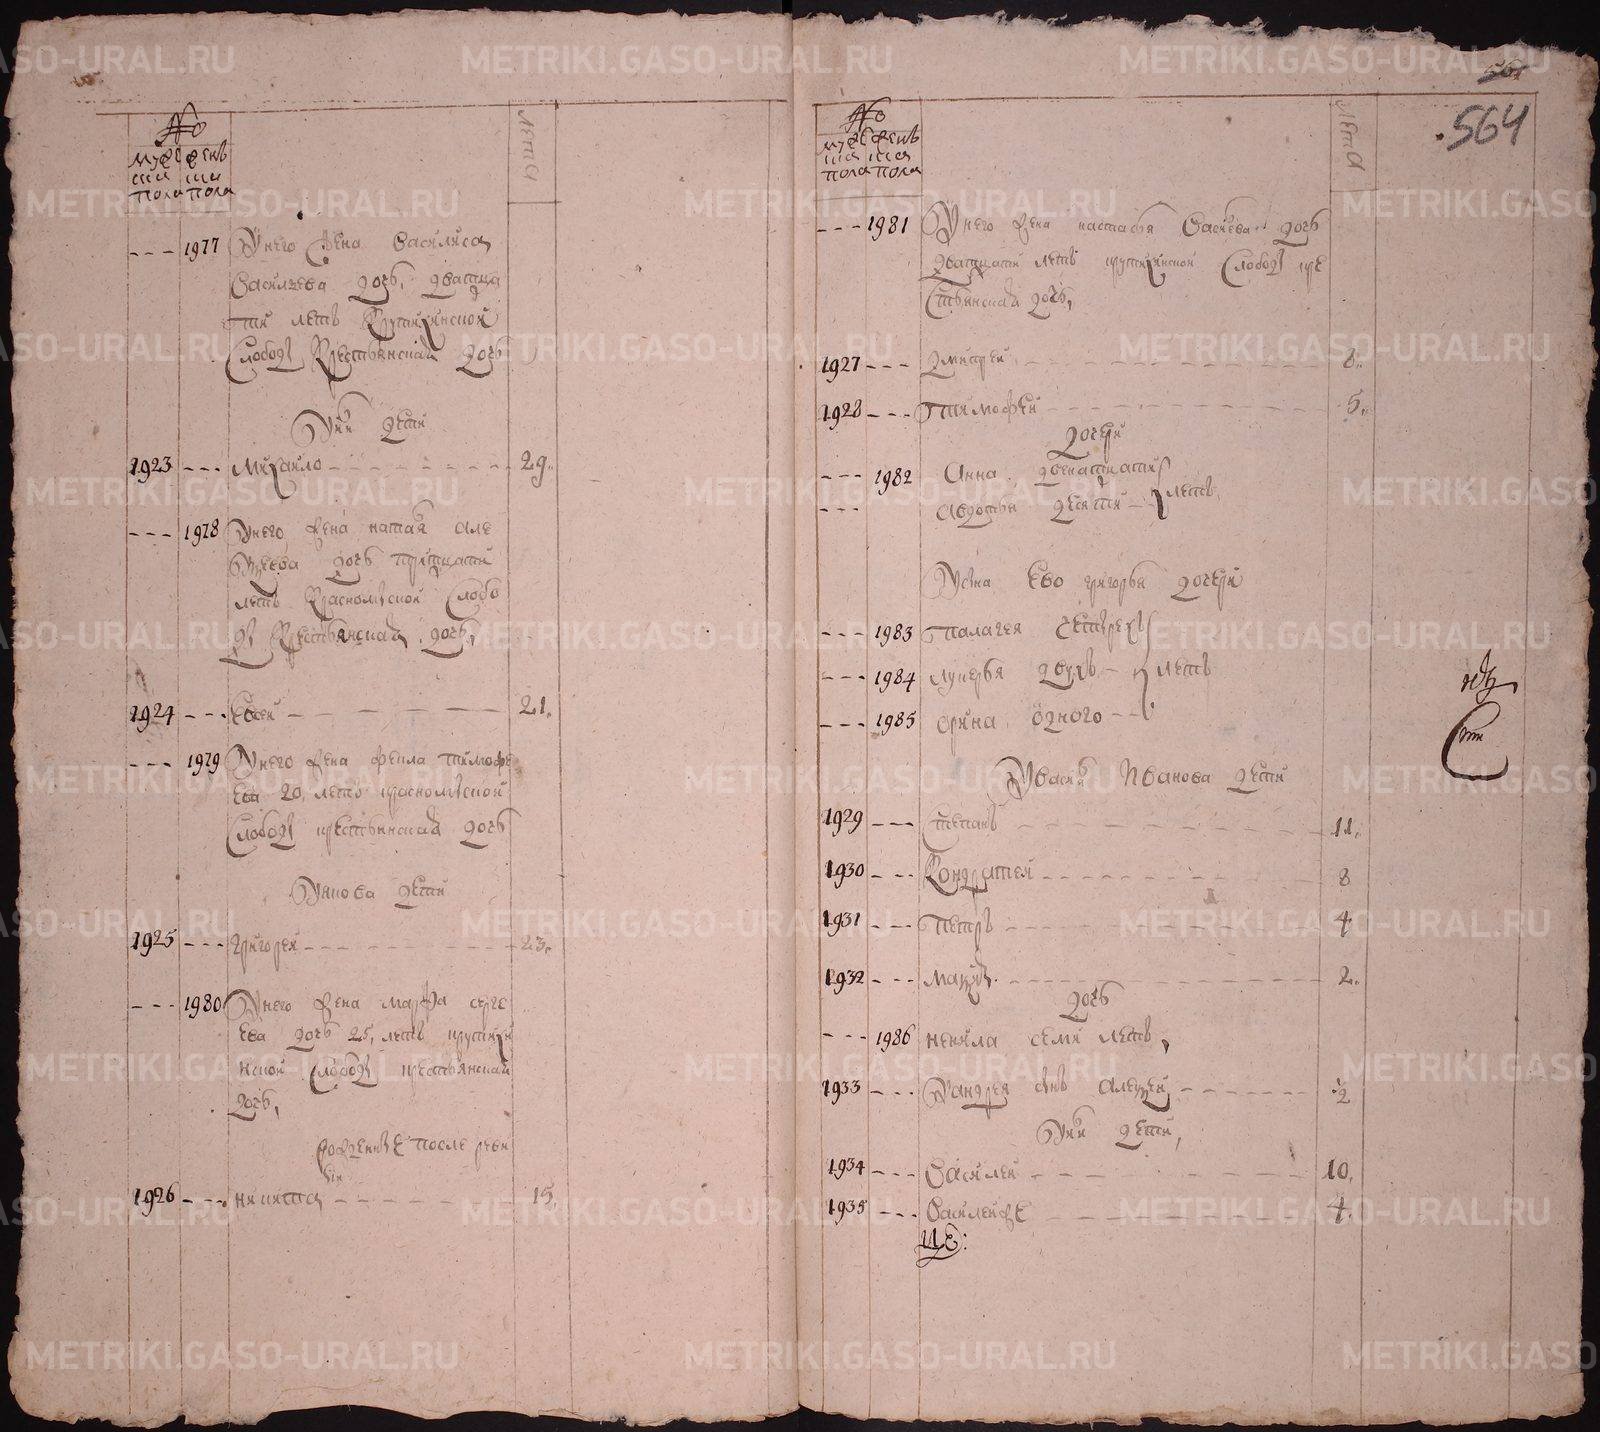 №
мужес женъ
ска ска
пола пола
лета
1977 У него жена Василиса
Васильева дочь, дватца
ти летъ Крутихинской
Слободы Крестьянская дочь
У них дети
1923 Михайло 29.
1978 У него жена Наталья Але
ѯеева дочь тритцати
летъ Красномыской Слобо
ды Крестьянская дочь,
1924 Евсей 21.
1979 У него жена Фекла Тимофе
ева 20, летъ красномыской
Слободы крестьянская дочь
У Якова дети
1925 Григорей 23.
1980 У него жена Марфа Серге
ева дочь 25, летъ крутихи
нской Слободы крестьянская
дочь,
рожденные после реви
зии
1926 Никита 15
№
мужес женъ
ска ска
пола пола
лета
564
1981 У него жена Настасья Васильева дочь
дватцати летъ крутихинской Слободы кре
стьянская дочь,
1927 Дмитрей 8.
1928 Тимофей 5.
дочери
1982 Анна двенатцати
Авдотья десяти летъ
У сына Ево Григорья дочери
1983 Палагея четырехъ
1984 Лукерья двухъ летъ
1985 Орина одного
У Василья Иванова дети
1929 Степанъ 11.
1930 Кондратей 8
1931 Петръ 4
1932 Макаръ 2.
дочь
1986 Ненила семи летъ,
1933 У Андрея сынъ Алеѯей 1/2
У них дети,
1934 Василей 10.
1935 Василей же 4.